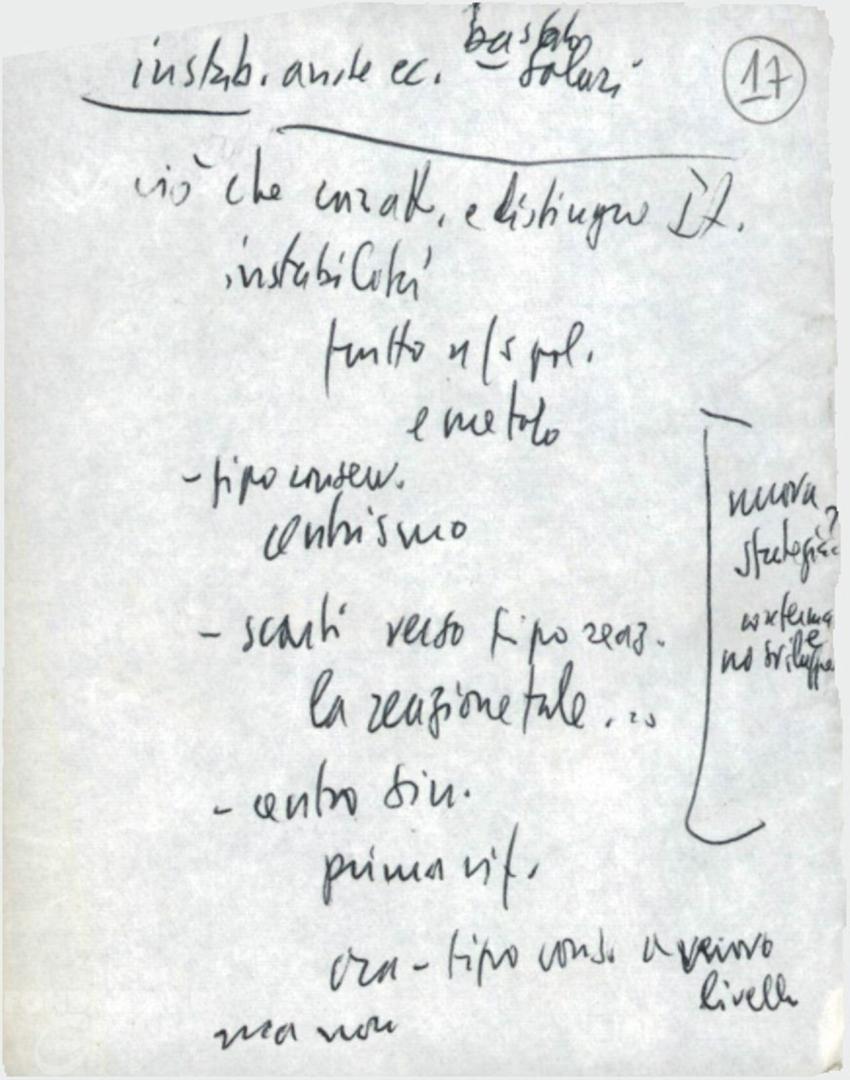 17
instab. anche ec. bassi salari
ciò che caratt. e distingue It.
instabilità
frutto
e metodo
- tipo conserv.
centrismo
- scarti verso tipo reaz.
la reazione tale ...
- centro sin.
prima rif.
ora - tipo cons. a nuovo
livello
ma non
nuova
strategia
no sviluppo